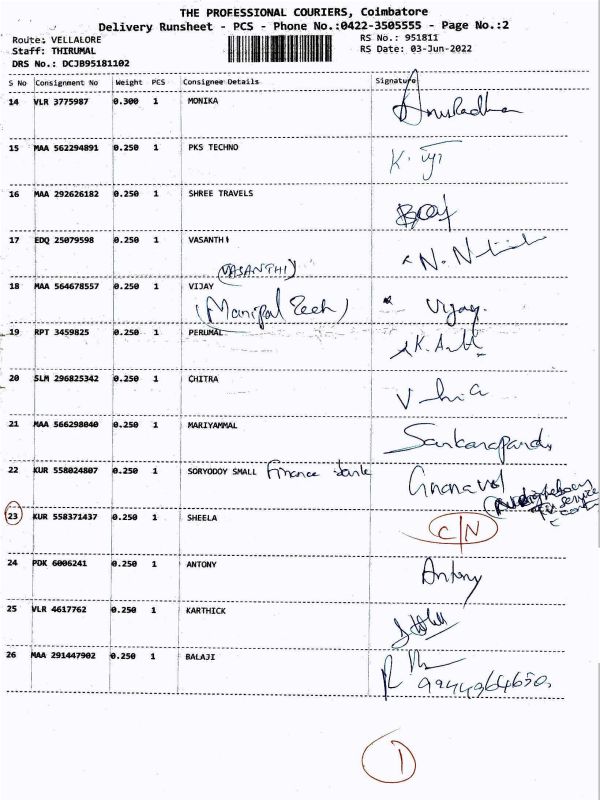 THE PROFESSIONAL COURIERS, Coimbatore
Delivery Runsheet - PCS - Phone No.:0422-3505555 - Page No.:2
Route: VELLALORE RS No.: 951811
Staff: THIRUMAL RS Date: 03-Jun-2022
DRS No.: DCJB95181102
S No Consignment No Weight PCS Consignee Details Signature
14 VLR 3775987 0.300 1 MONIKA Anuradha
15 MAA 562294891 0.250 1 PKS TECHNO K.
16 MAA 292626182 0.250 1 SHREE TRAVELS
17 EDQ 25079598 0.250 1 VASANTHI N.
(VASANTHI)
18 MAA 564678557 0.250 1 VIJAY Vijay
(Manipal Tech)
19 RPT 3459825 0.250 1 PERUMAL K.
20 SLM 296825342 0.250 1 CHITRA
21 MAA 566298040 0.250 1 MARIYAMMAL
22 KUR 558024807 0.250 1 SORYODOY SMALL Finance bank
23 KUR 558371437 0.250 1 SHEELA C/N
24 PDK 6006241 0.250 1 ANTONY Antony
25 VLR 4617762 0.250 1 KARTHICK
26 MAA 291447902 0.250 1 BALAJI
9944364650
1